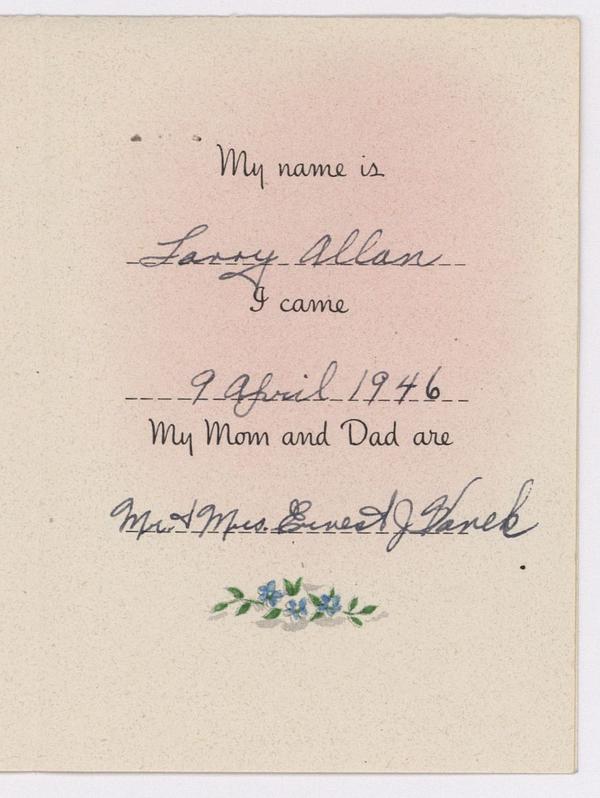 My name is
Larry Allan
I came
9 April 1946
My Mom and Dad are
Mr. & Mrs. Ernest J Vanek